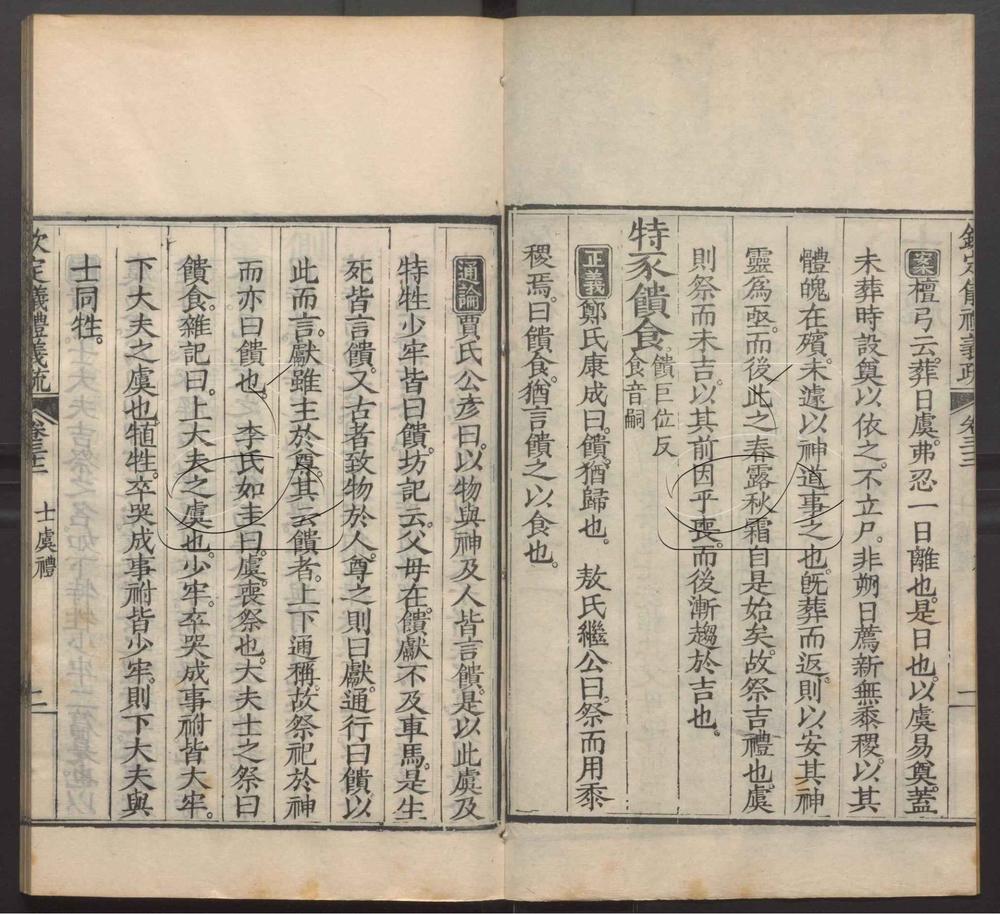 欽定儀禮義疏 卷三三 一
案檀弓云葬日虞弗忍一日離也是日也以虞易奠蓋
未葬時設奠以依之不立尸非朔日薦新無黍稷以其
體魄在殯未遽以神道事之也旣葬而返則以安其神
靈為亟而後此之春露秋霜自是始矣故祭吉禮也虞
則祭而未吉以其前因乎喪而後漸趨於吉也
特豕饋食饋巨位反食音嗣
正義鄭氏康成曰饋猶歸也 敖氏繼公曰祭而用黍
稷焉曰饋食猶言饋之以食也
通論賈氏公彥曰以物與神及人皆言饋是以此虞及
特牲少牢皆曰饋坊記云父母在饋獻不及車馬是生
死皆言饋又古者致物於人尊之則曰獻通行曰饋以
此而言獻雖主於尊其云饋者上下通稱故祭祀於神
而亦曰饋也 李氏如圭曰虞喪祭也大夫士之祭曰
饋食雜記曰上大夫之虞也少牢卒哭成事祔皆大牢
下大夫之虞也犆牲卒哭成事祔皆少牢則下大夫與
士同牲
欽定儀禮義疏 卷三三 士虞禮 二